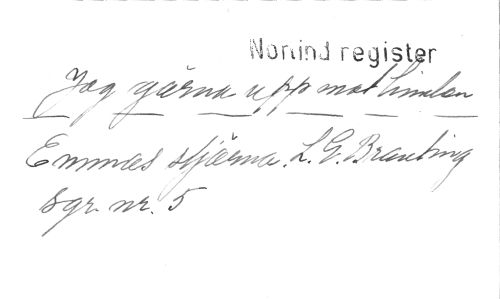 Norlind register
Jag gärna upp mot himlen
Emmas stjärna. L. G. Branting
sgr. nr. 5